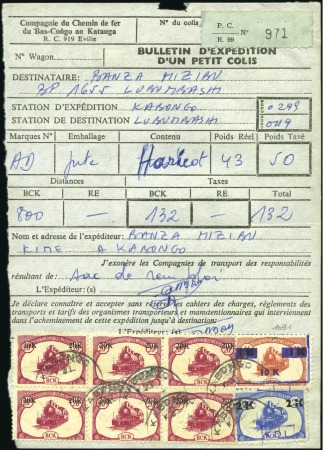 Compagnie du Chemin de fer
du Bas-Congo au Katanga
R. C. 919 Eville
N° du colis
P. C.
R. 99
N° 971
N° Wagon
BULLETIN D'EXPÉDITION
D'UN PETIT COLIS
DESTINATAIRE: BANZA MIZIAN
BP 1655 LUBUMBASHI
STATION D'EXPÉDITION KABONGO 0299
STATION DE DESTINATION LUBUMBASHI
Marques N° Emballage Contenu Poids Réel Poids Taxé
AD jute Haricot 43 50
Distances Taxes
BCK RE BCK RE Total
800 — 132 — 132
Nom et adresse de l'expéditeur: BANZA MIZIAN
KIME A KABONGO
J'exonère les Compagnies de transport des responsabilités
résultant de: sac de
L'Expéditeur: (s)
Je déclare connaître et accepter sans réserve les cahiers des charges, règlements
des transports et tarifs des organismes transporteurs et manutentionnaires qui interviennent
dans l'acheminement de cette expédition jusqu'à destination.
L'Expéditeur: (s)
20K 20K 20K 1K 1K
10 K
BCK
20K 20K 20K 2K 2K
BCK BCK BCK